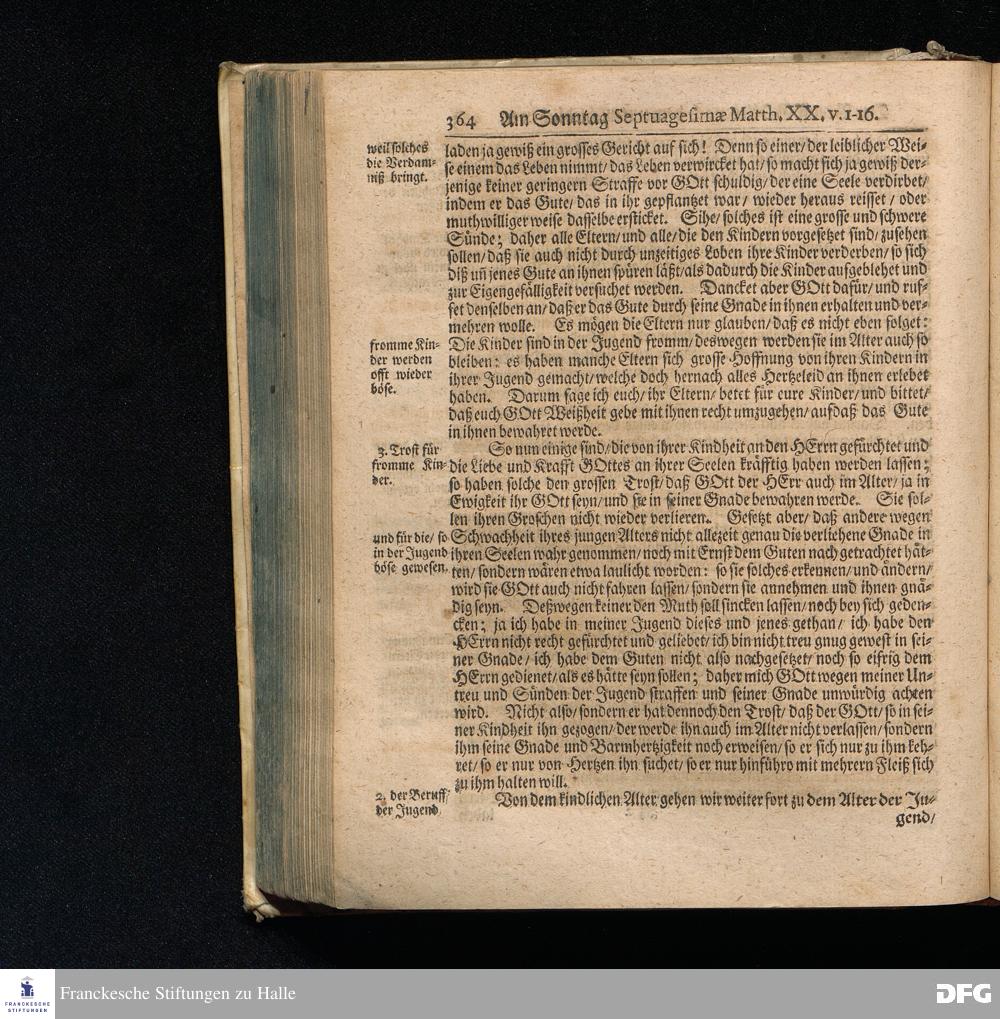 364 Am Sonntag Septuagesimæ Matth. XX. v. 1-16.
weil solches
die Verdam-
niß bringt.
laden ja gewiß ein grosses Gericht auf sich! Denn so einer/ der leiblicher Wei-
se einem das Leben nimmt/ das Leben verwircket hat/ so macht sich ja gewiß der-
jenige keiner geringern Straffe vor GOtt schuldig/ der eine Seele verdirbet/
indem er das Gute/ das in ihr gepflantzet war/ wieder heraus reisset/ oder
muthwilliger weise dasselbe ersticket. Sihe/ solches ist eine grosse und schwere
Sünde; daher alle Eltern/ und alle/ die den Kindern vorgesetzet sind/ zusehen
sollen/ daß sie auch nicht durch unzeitiges Loben ihre Kinder verderben/ so sich
diß uñ jenes Gute an ihnen spüren läßt/ als dadurch die Kinder aufgeblehet und
zur Eigengefälligkeit versuchet werden. Dancket aber GOtt dafür/ und ruf-
fet denselben an/ daß er das Gute durch seine Gnade in ihnen erhalten und ver-
mehren wolle. Es mögen die Eltern nur glauben/ daß es nicht eben folget:
fromme Kin-
der werden
offt wieder
böse.
Die Kinder sind in der Jugend fromm/ deswegen werden sie im Alter auch so
bleiben: es haben manche Eltern sich grosse Hoffnung von ihren Kindern in
ihrer Jugend gemacht/ welche doch hernach alles Hertzeleid an ihnen erlebet
haben. Darum sage ich euch/ ihr Eltern/ betet für eure Kinder/ und bittet/
daß euch GOtt Weißheit gebe mit ihnen recht umzugehen/ aufdaß das Gute
in ihnen bewahret werde.
3. Trost für
fromme Kin-
der.
So nun einige sind/ die von ihrer Kindheit an den HErrn gefürchtet und
die Liebe und Krafft GOttes an ihrer Seelen kräfftig haben werden lassen;
so haben solche den grossen Trost/ daß GOtt der HErr auch im Alter/ ja in
Ewigkeit ihr GOtt seyn/ und sie in seiner Gnade bewahren werde. Sie sol-
len ihren Groschen nicht wieder verlieren. Gesetzt aber/ daß andere wegen
und für die/ so
in der Jugend
böse gewesen.
Schwachheit ihres jungen Alters nicht allezeit genau die verliehene Gnade in
ihren Seelen wahr genommen/ noch mit Ernst dem Guten nach getrachtet hät-
ten/ sondern wären etwa laulicht worden: so sie solches erkennen/ und ändern/
wird sie GOtt auch nicht fahren lassen/ sondern sie annehmen und ihnen gnä-
dig seyn. Deßwegen keiner den Muth soll sincken lassen/ noch bey sich geden-
cken; ja ich habe in meiner Jugend dieses und jenes gethan/ ich habe den
HErrn nicht recht gefürchtet und geliebet/ ich bin nicht treu gnug gewest in sei-
ner Gnade/ ich habe dem Guten nicht also nachgesetzet/ noch so eifrig dem
HErrn gedienet/ als es hätte seyn sollen; daher mich GOtt wegen meiner Un-
treu und Sünden der Jugend straffen und seiner Gnade unwürdig achten
wird. Nicht also/ sondern er hat dennoch den Trost/ daß der GOtt/ so in sei-
ner Kindheit ihn gezogen/ der werde ihn auch im Alter nicht verlassen/ sondern
ihm seine Gnade und Barmhertzigkeit noch erweisen/ so er sich nur zu ihm keh-
ret/ so er nur von Hertzen ihn suchet/ so er nur hinführo mit mehrern Fleiß sich
zu ihm halten will.
2. der Beruff
der Jugend
Von dem kindlichen Alter gehen wir weiter fort zu dem Alter der Ju-
gend/
FRANCKESCHE
STIFTUNGEN
Franckesche Stiftungen zu Halle
DFG